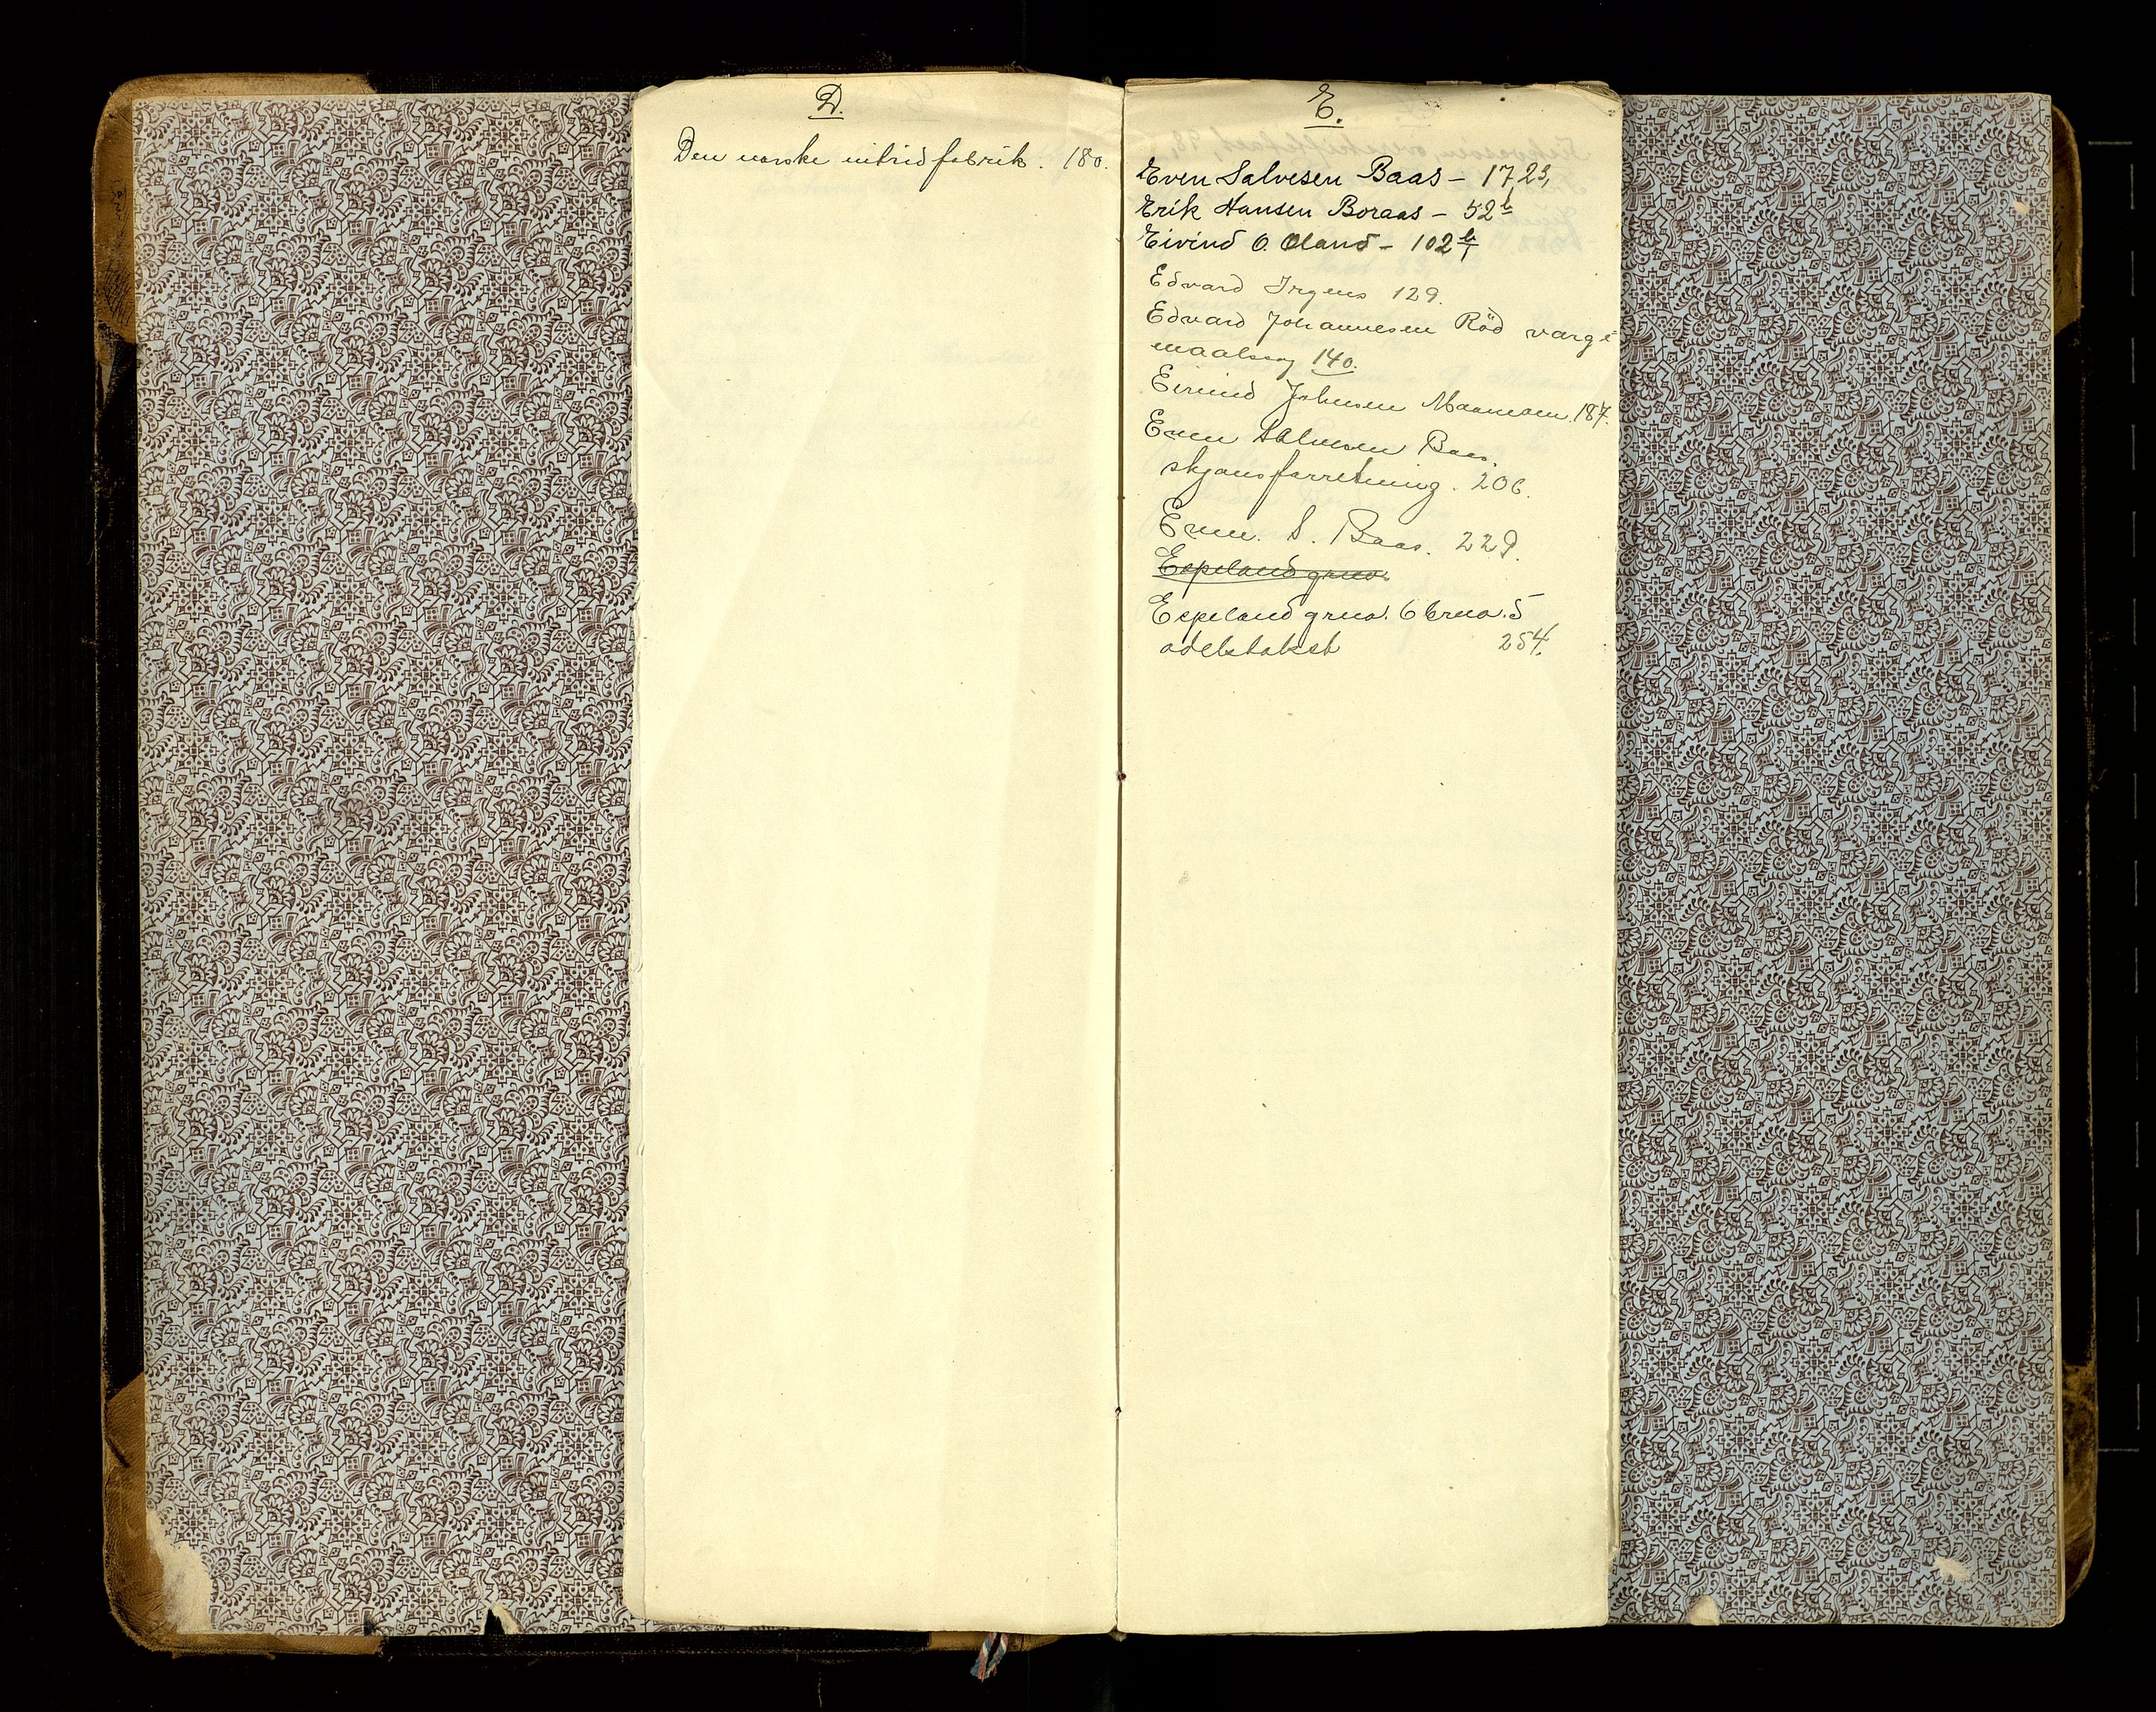 D.
Den norske nitridfabrik. 180.
E.
Even Salvesen Baas – 17, 23,
Erik Hansen Boraas – 52b
Eivind O. Oland – 102b
Edvard Irgens 129.
Edvard Johannesen Röd værge
maalssag 140.
Eivind Johnsen 187.
Even Salvesen Baas.
skjønsforretning. 206.
Even. S. Baas. 229.
Espeland gno.
Espeland gno. 6 bno. 5
odelstakst 254.